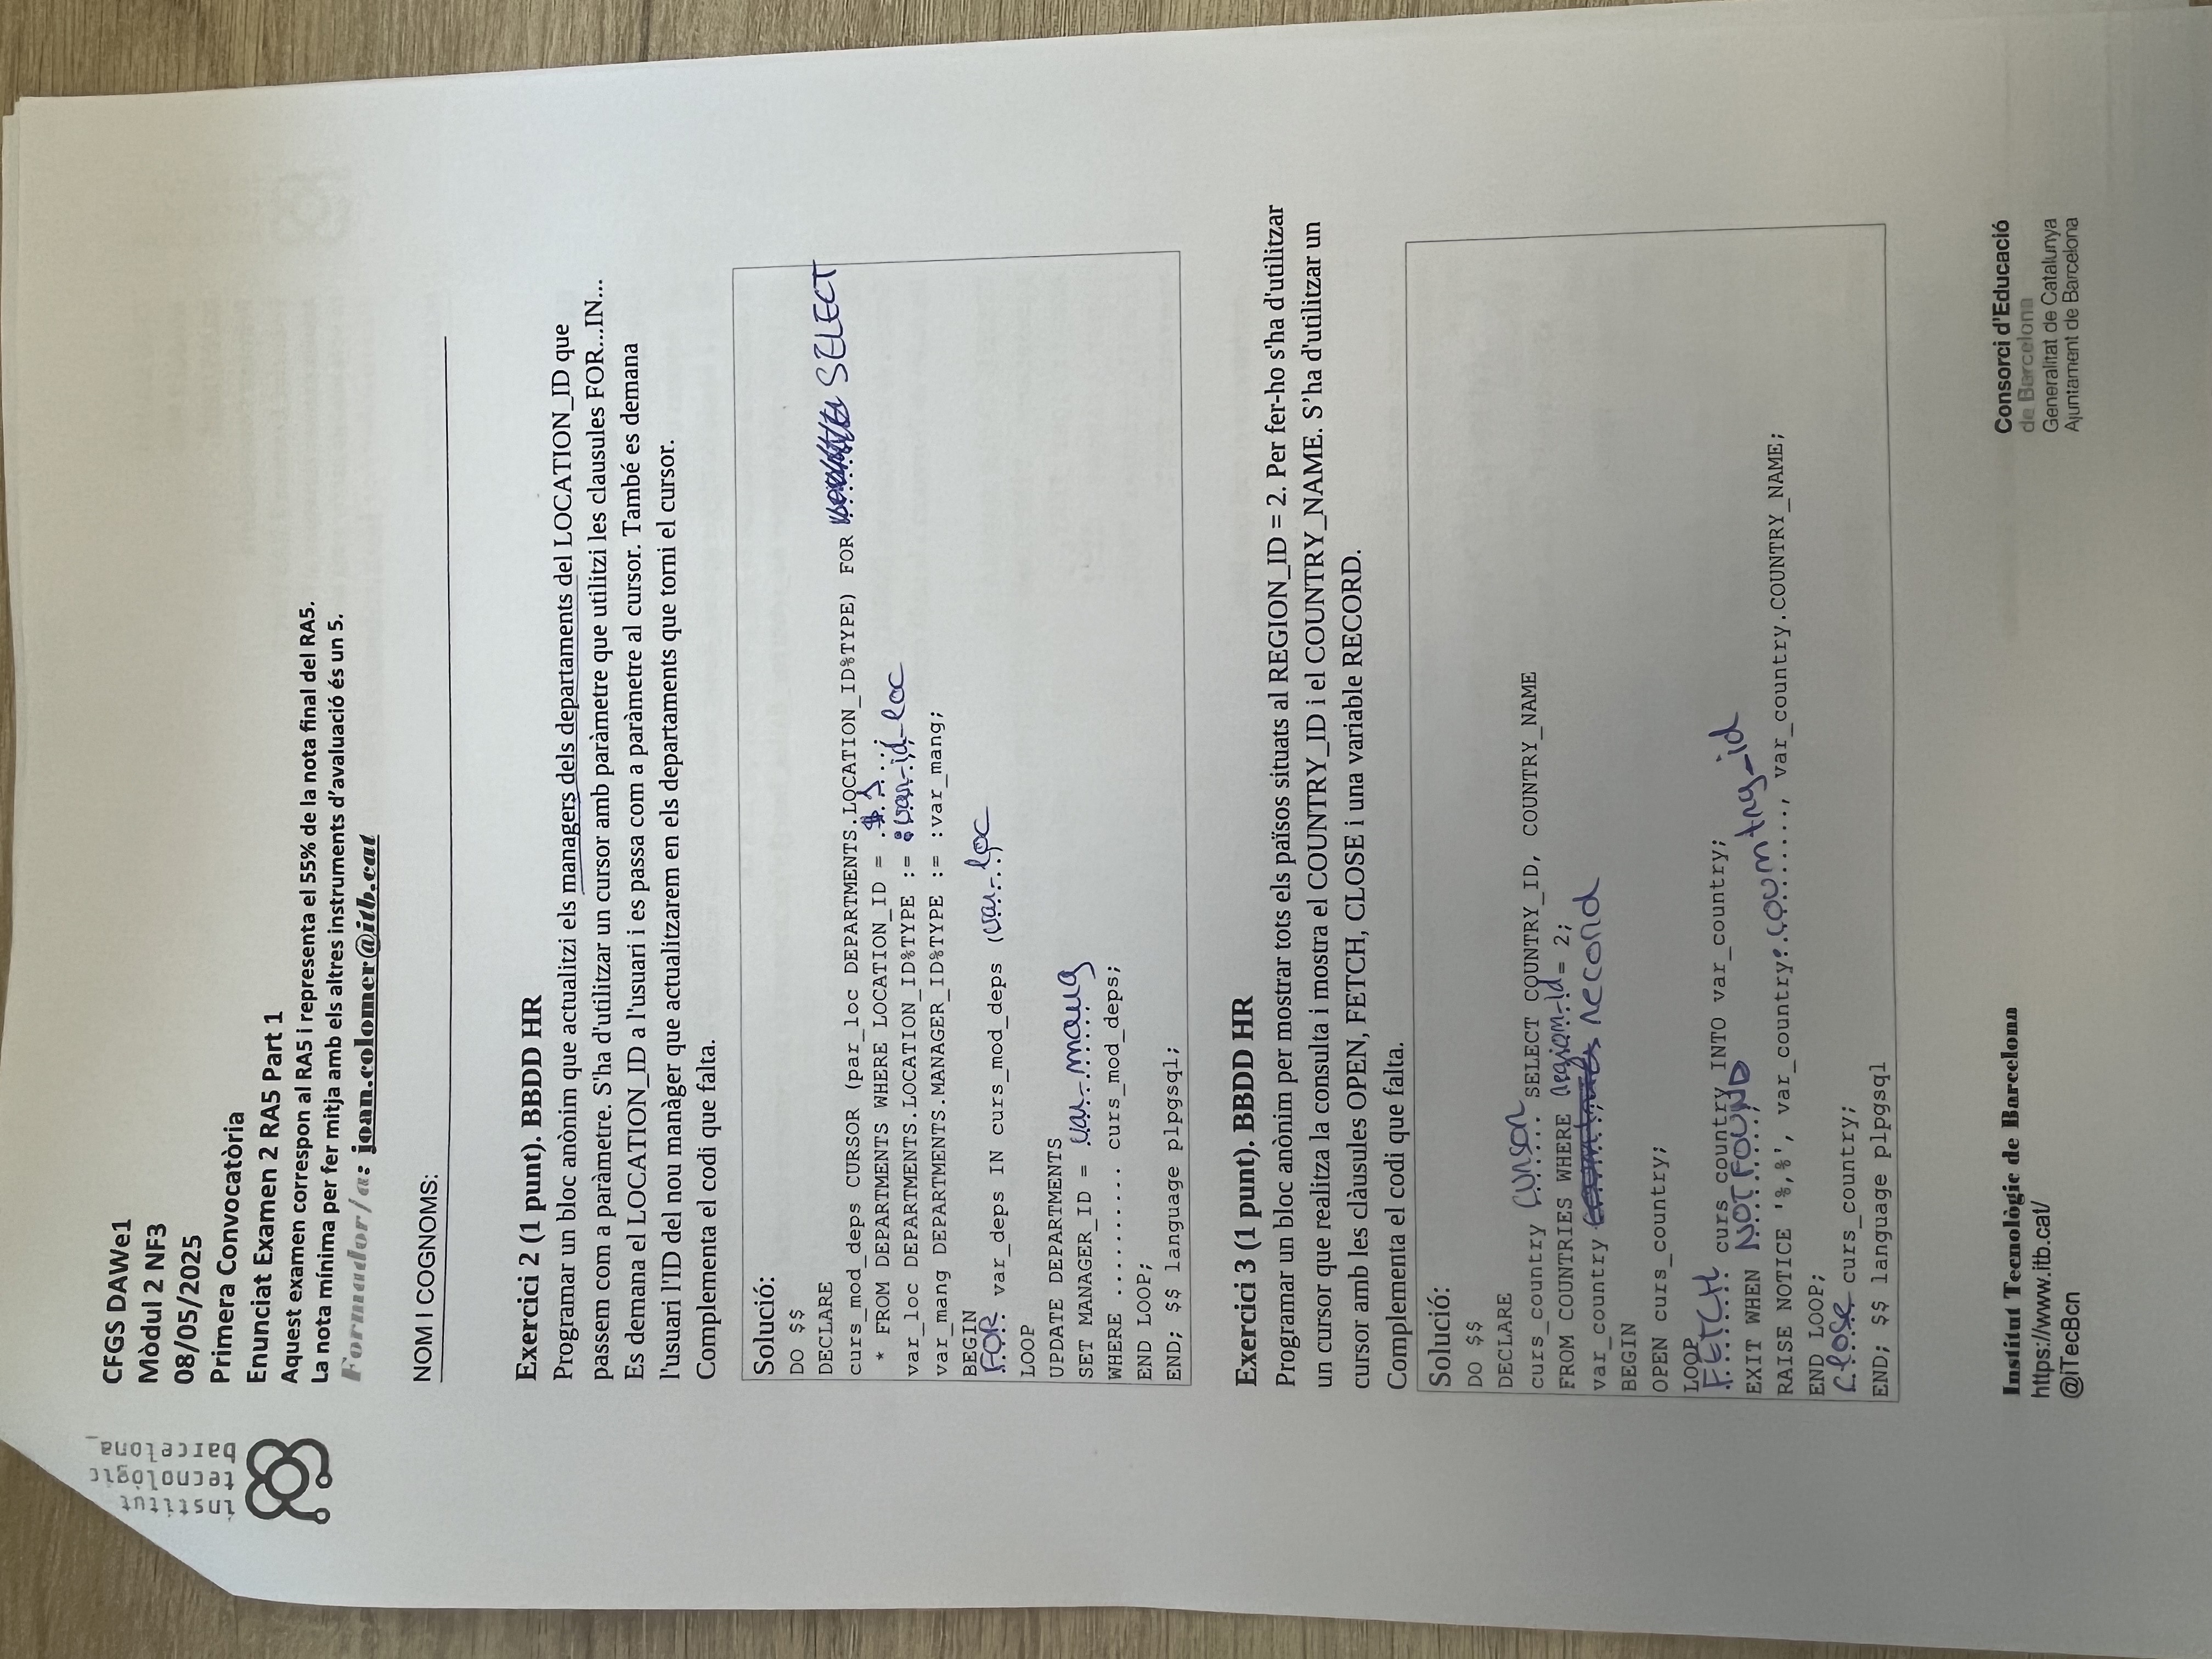 institut
tecnològic
barcelona_
CFGS DAWe1
Mòdul 2 NF3
08/05/2025
Primera Convocatòria
Enunciat Examen 2 RA5 Part 1
Aquest examen correspon al RA5 i representa el 55% de la nota final del RA5.
La nota mínima per fer mitja amb els altres instruments d'avaluació és un 5.
Formador/a: joan.colomer@itb.cat
NOM I COGNOMS:
Exercici 2 (1 punt). BBDD HR
Programar un bloc anònim que actualitzi els managers dels departaments del LOCATION_ID que
passem com a paràmetre. S'ha d'utilitzar un cursor amb paràmetre que utilitzi les clausules FOR...IN...
Es demana el LOCATION_ID a l'usuari i es passa com a paràmetre al cursor. També es demana
l'usuari l'ID del nou manàger que actualitzarem en els departaments que torni el cursor.
Complementa el codi que falta.
Solució:
DO $$
DECLARE
curs_mod_deps CURSOR (par_loc DEPARTMENTS.LOCATION_ID%TYPE) FOR SELECT
* FROM DEPARTMENTS WHERE LOCATION_ID = $1;
var_loc DEPARTMENTS.LOCATION_ID%TYPE := :var_id_loc
var_mang DEPARTMENTS.MANAGER_ID%TYPE := :var_mang;
BEGIN
FOR var_deps IN curs_mod_deps (var_loc)
LOOP
UPDATE DEPARTMENTS
SET MANAGER_ID = var_mang
WHERE .......... curs_mod_deps;
END LOOP;
END; $$ language plpgsql;
Exercici 3 (1 punt). BBDD HR
Programar un bloc anònim per mostrar tots els països situats al REGION_ID = 2. Per fer-ho s'ha d'utilitzar
un cursor que realitza la consulta i mostra el COUNTRY_ID i el COUNTRY_NAME. S'ha d'utilitzar un
cursor amb les clàusules OPEN, FETCH, CLOSE i una variable RECORD.
Complementa el codi que falta.
Solució:
DO $$
DECLARE
curs_country cursor SELECT COUNTRY_ID, COUNTRY_NAME
FROM COUNTRIES WHERE region_id = 2;
var_country record
BEGIN
OPEN curs_country;
LOOP
FETCH curs_country INTO var_country;
EXIT WHEN NOT FOUND;
RAISE NOTICE '%,%', var_country.country_id, var_country.COUNTRY_NAME;
END LOOP;
close curs_country;
END; $$ language plpgsql
Institut Tecnològic de Barcelona
https://www.itb.cat/
@iTecBcn
Consorci d'Educació
de Barcelona
Generalitat de Catalunya
Ajuntament de Barcelona